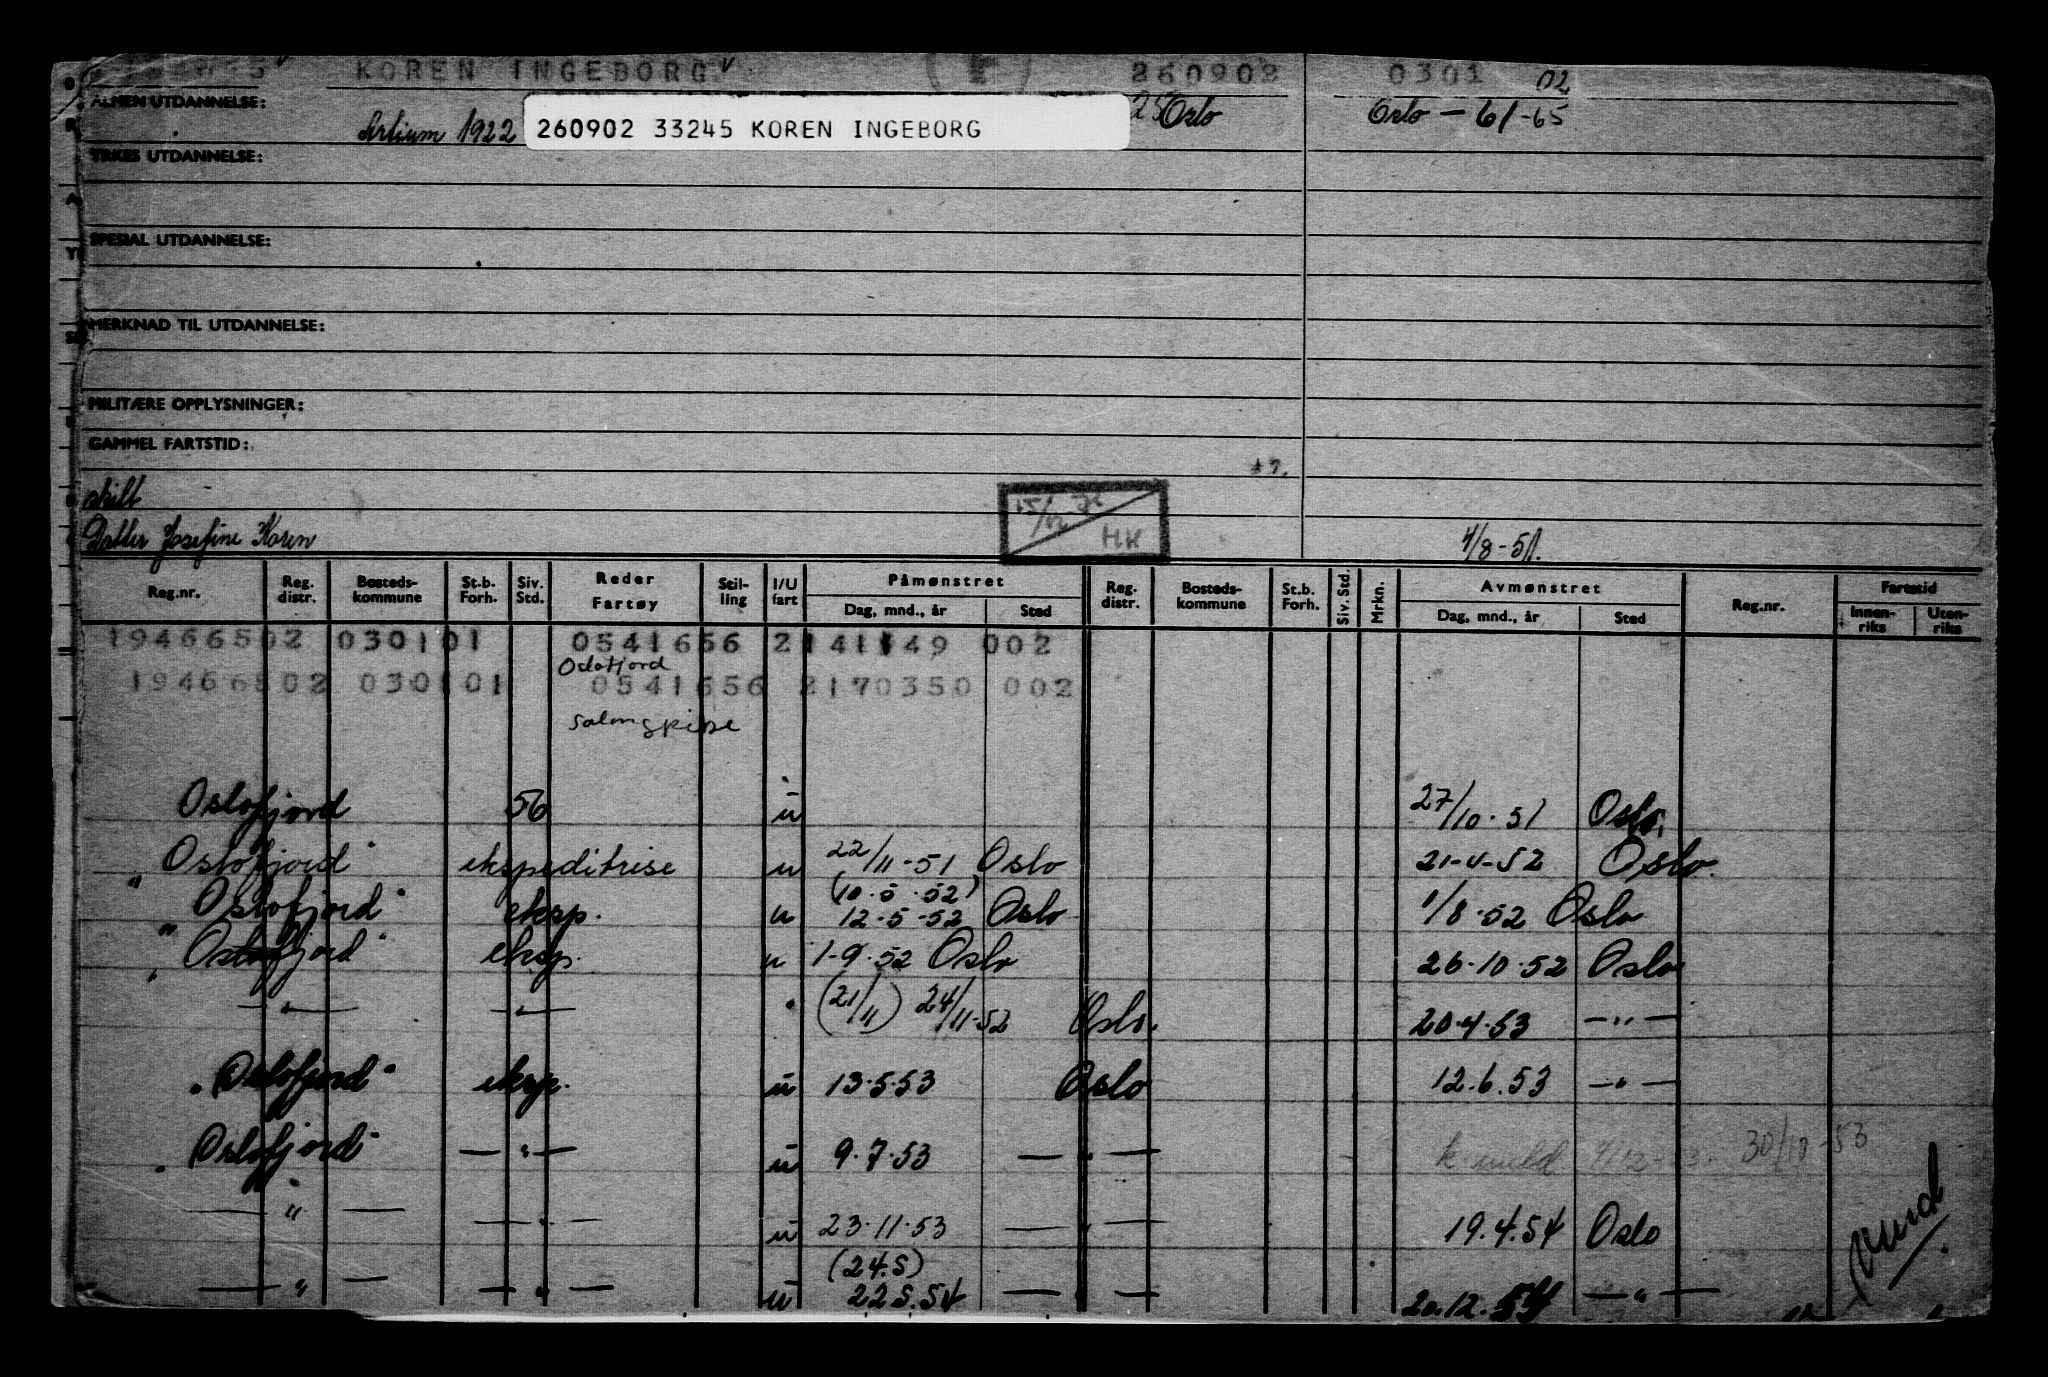 KOREN INGEBORG 260902 0301 02
ALMEN UTDANNELSE:
Artium 1922 260902 33245 KOREN INGEBORG Oslo Oslo - 61-65
YRKES UTDANNELSE:
SPESIAL UTDANNELSE:
MERKNAD TIL UTDANNELSE:
MILITÆRE OPPLYSNINGER:
GAMMEL FARTSTID:
skilt
HK
Datter Josefine Koren 4/8-51.
Reg.nr. Reg. distr. Bosteds-kommune St.b. Forh. Siv. Std. Reder Fartøy Stil-ling I/U fart Påmønstret Dag, mnd., år Sted Reg. distr. Bosteds-kommune St.b. Forh. Siv. Std. Mrkn. Avmønstret Dag, mnd., år Sted Reg.nr. Fartstid Innen-riks Uten-riks
19466502 030101 0541656 2141149 002
Oslofjord
19466502 030101 0541656 2170350 002
salongpike
Oslofjord 56 u 27/10-51 Oslo.
"Oslofjord" ekspeditrise u 22/11-51 Oslo 21-4-52 Oslo.
(10.5.52)
"Oslofjord" eksp. u 12-5-52 Oslo 1/8-52 Oslo
"Oslofjord" eksp. u 1-9-52 Oslo 26-10-52 Oslo
—"— —"— " (21/11) 24/11-52 Oslo. 20-4-53 —"—
"Oslofjord" eksp. u 13-5-53 Oslo 12.6.53 —"—
"Oslofjord" —"— u 9.7.53 —"— 30/10-53
—"— —"— u 23.11.53 —"— 19.4.54 Oslo
(24.5)
—"— —"— u 22.5.54 —"— 20.12.54 —"—